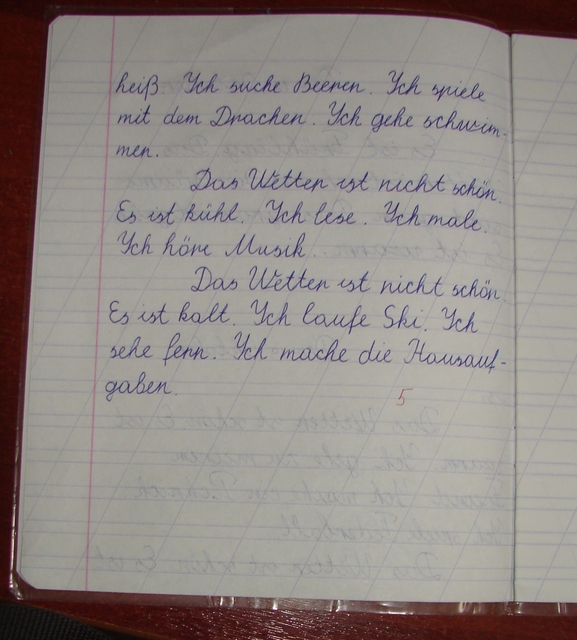 heiß. Ich suche Beeren. Ich spiele
mit dem Drachen. Ich gehe schwim-
men.
Das Wetter ist nicht schön.
Es ist kühl. Ich lese. Ich male.
Ich höre Musik.
Das Wetter ist nicht schön.
Es ist kalt. Ich laufe Ski. Ich
sehe fern. Ich mache die Hausauf-
gaben.
5